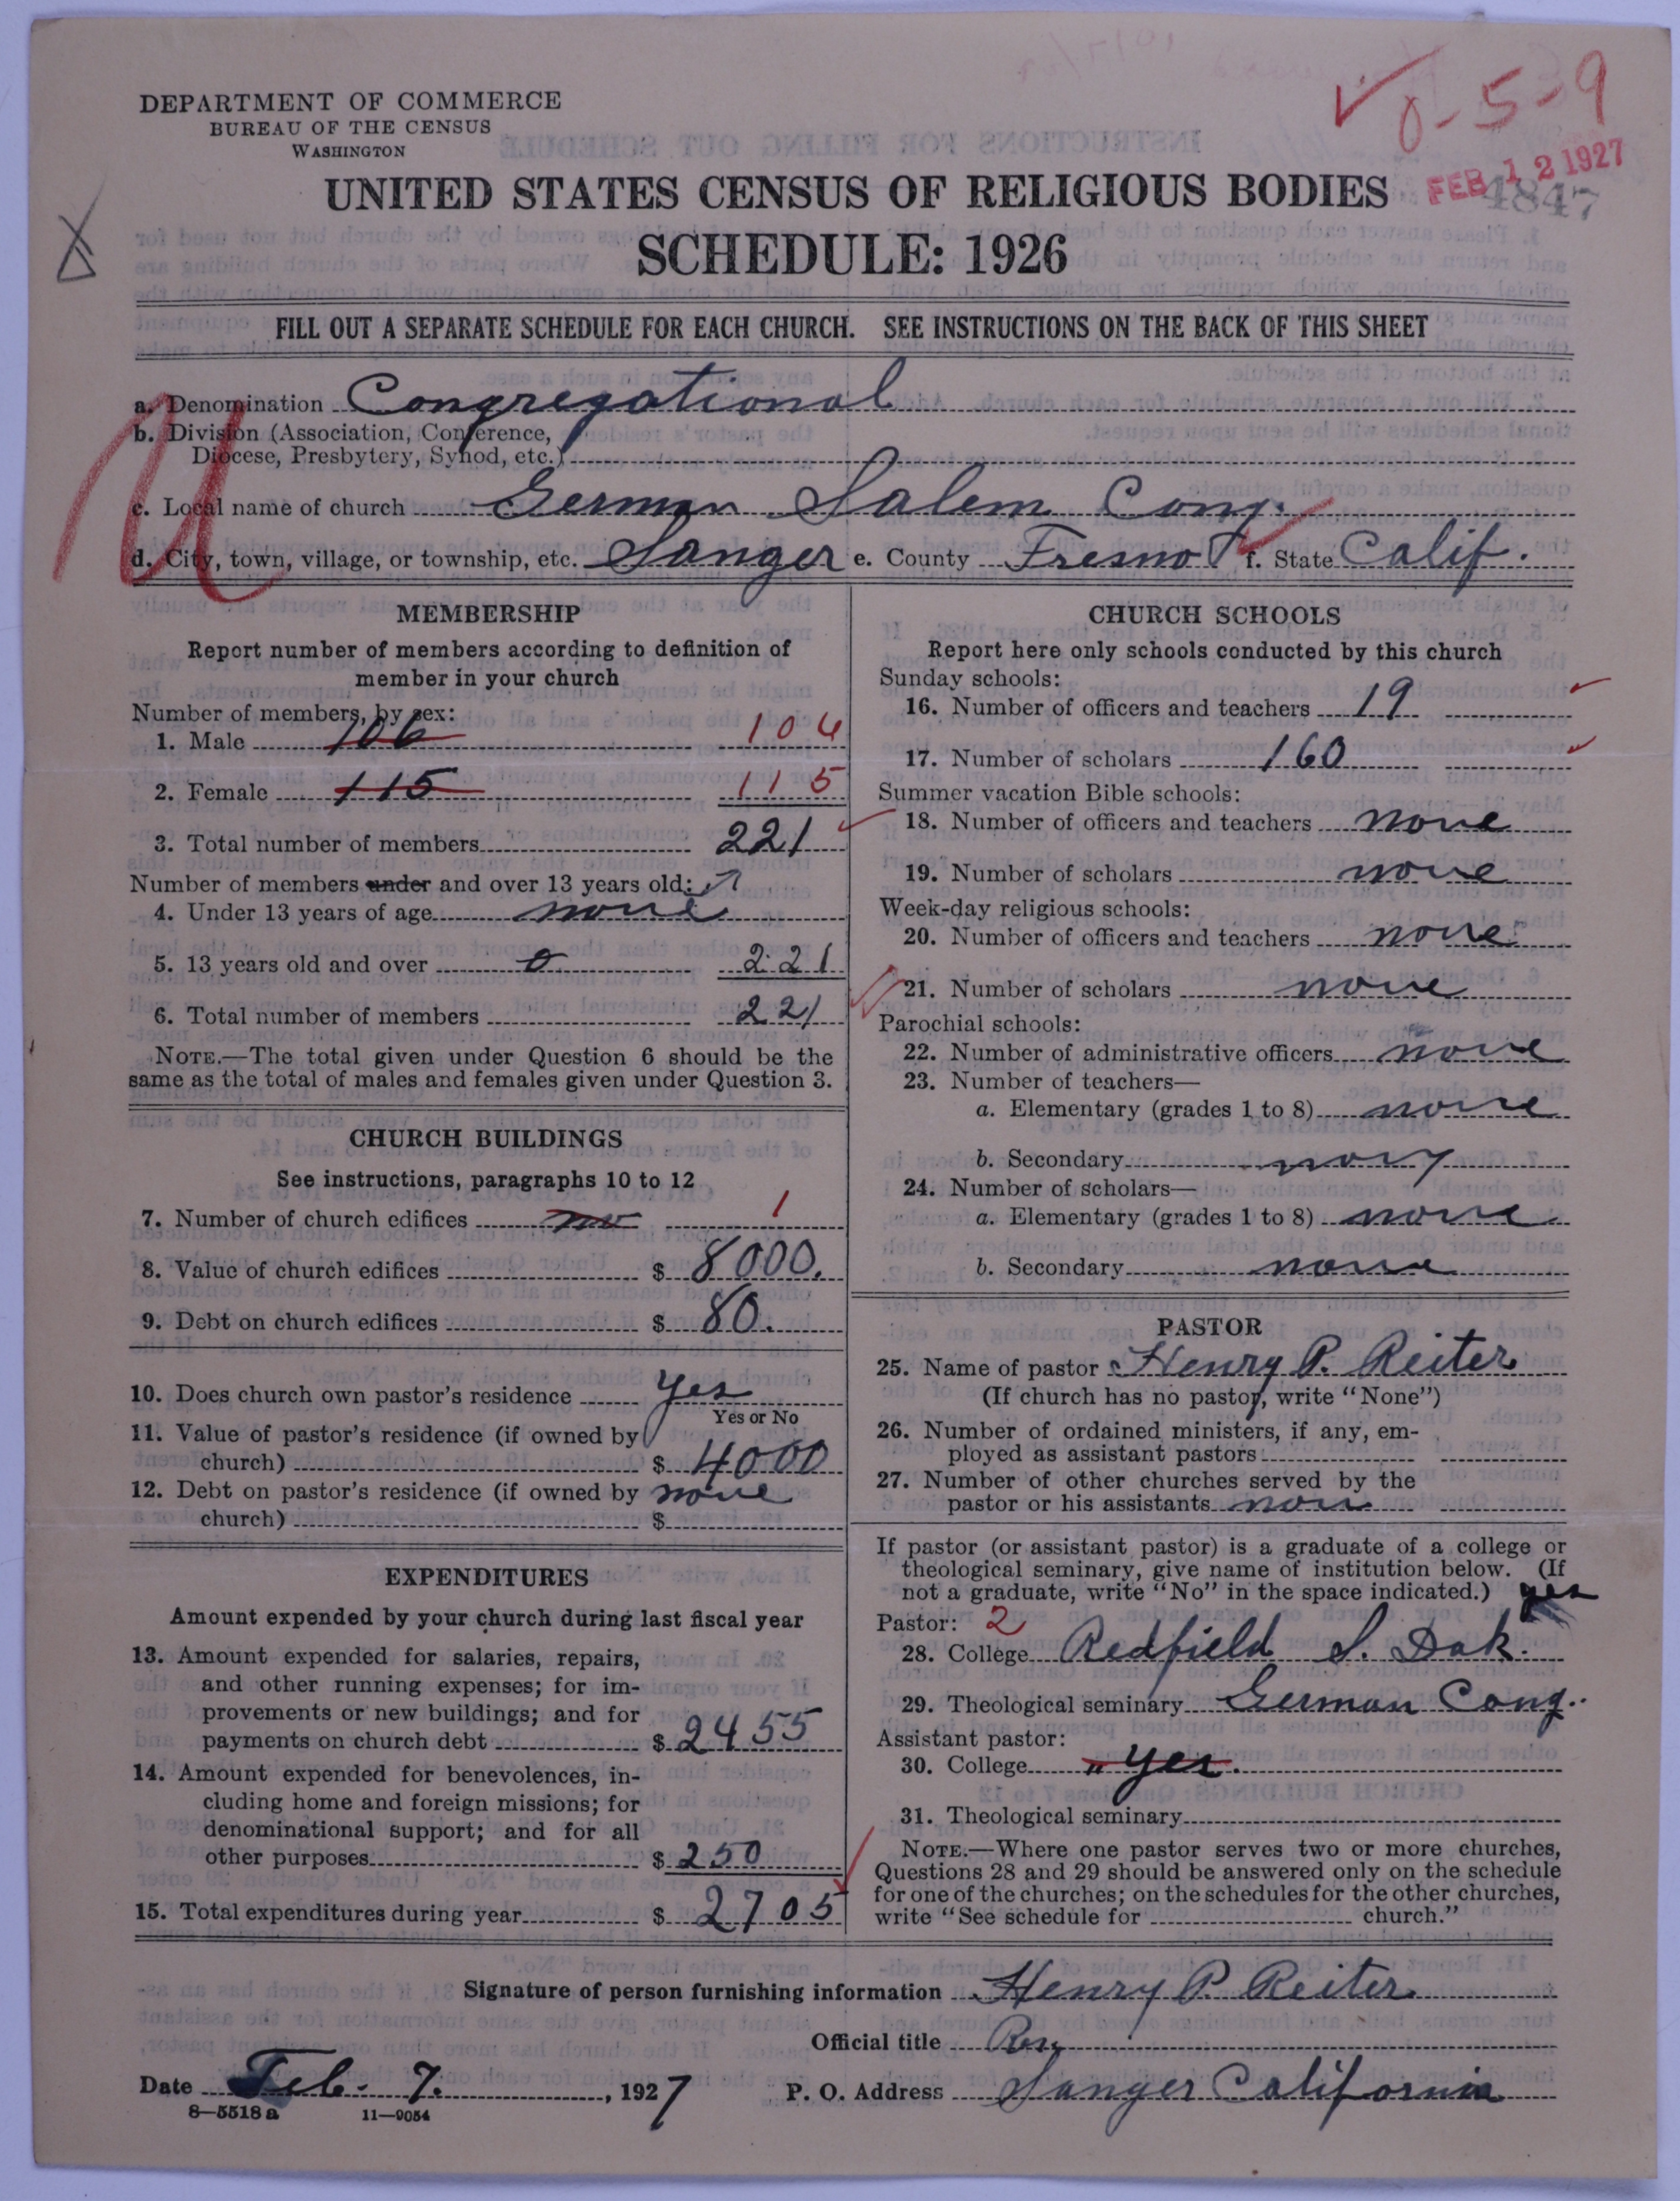 DEPARTMENT OF COMMERCE
BUREAU OF THE CENSUS
WASHINGTON
0-5-9
FEB 12 1927
4847
UNITED STATES CENSUS OF RELIGIOUS BODIES
SCHEDULE: 1926
FILL OUT A SEPARATE SCHEDULE FOR EACH CHURCH. SEE INSTRUCTIONS ON THE BACK OF THIS SHEET
a. Denomination Congregational
b. Division (Association, Conference,
Diocese, Presbytery, Synod, etc.)
c. Local name of church German Salem Cong.
d. City, town, village, or township, etc. Sanger e. County Fresno f. State Calif.
MEMBERSHIP
Report number of members according to definition of
member in your church
Number of members, by sex:
1. Male 106 106
2. Female 115 115
3. Total number of members 221
Number of members under and over 13 years old:
4. Under 13 years of age none
5. 13 years old and over 0 221
6. Total number of members 221
NOTE.—The total given under Question 6 should be the
same as the total of males and females given under Question 3.
CHURCH BUILDINGS
See instructions, paragraphs 10 to 12
7. Number of church edifices no 1
8. Value of church edifices $ 8000.
9. Debt on church edifices $ 80.
10. Does church own pastor's residence yes
Yes or No
11. Value of pastor's residence (if owned by
church) $ 4000
12. Debt on pastor's residence (if owned by none
church) $
EXPENDITURES
Amount expended by your church during last fiscal year
13. Amount expended for salaries, repairs,
and other running expenses; for im-
provements or new buildings; and for
payments on church debt $ 2455
14. Amount expended for benevolences, in-
cluding home and foreign missions; for
denominational support; and for all
other purposes $ 250
15. Total expenditures during year $ 2705
CHURCH SCHOOLS
Report here only schools conducted by this church
Sunday schools:
16. Number of officers and teachers 19
17. Number of scholars 160
Summer vacation Bible schools:
18. Number of officers and teachers none
19. Number of scholars none
Week-day religious schools:
20. Number of officers and teachers none
21. Number of scholars none
Parochial schools:
22. Number of administrative officers none
23. Number of teachers—
a. Elementary (grades 1 to 8) none
b. Secondary
24. Number of scholars—
a. Elementary (grades 1 to 8) none
b. Secondary none
PASTOR
25. Name of pastor Henry P. Reiter
(If church has no pastor, write "None")
26. Number of ordained ministers, if any, em-
ployed as assistant pastors
27. Number of other churches served by the
pastor or his assistants non
If pastor (or assistant pastor) is a graduate of a college or
theological seminary, give name of institution below. (If
not a graduate, write "No" in the space indicated.) yes
Pastor: 2
28. College Redfield S. Dak.
29. Theological seminary German Cong.
Assistant pastor:
30. College " yes.
31. Theological seminary
NOTE.—Where one pastor serves two or more churches,
Questions 28 and 29 should be answered only on the schedule
for one of the churches; on the schedules for the other churches,
write "See schedule for church."
Signature of person furnishing information Henry P. Reiter
Official title
Date Feb. 7. , 1927 P. O. Address Sanger California
8—5518 a 11—9054